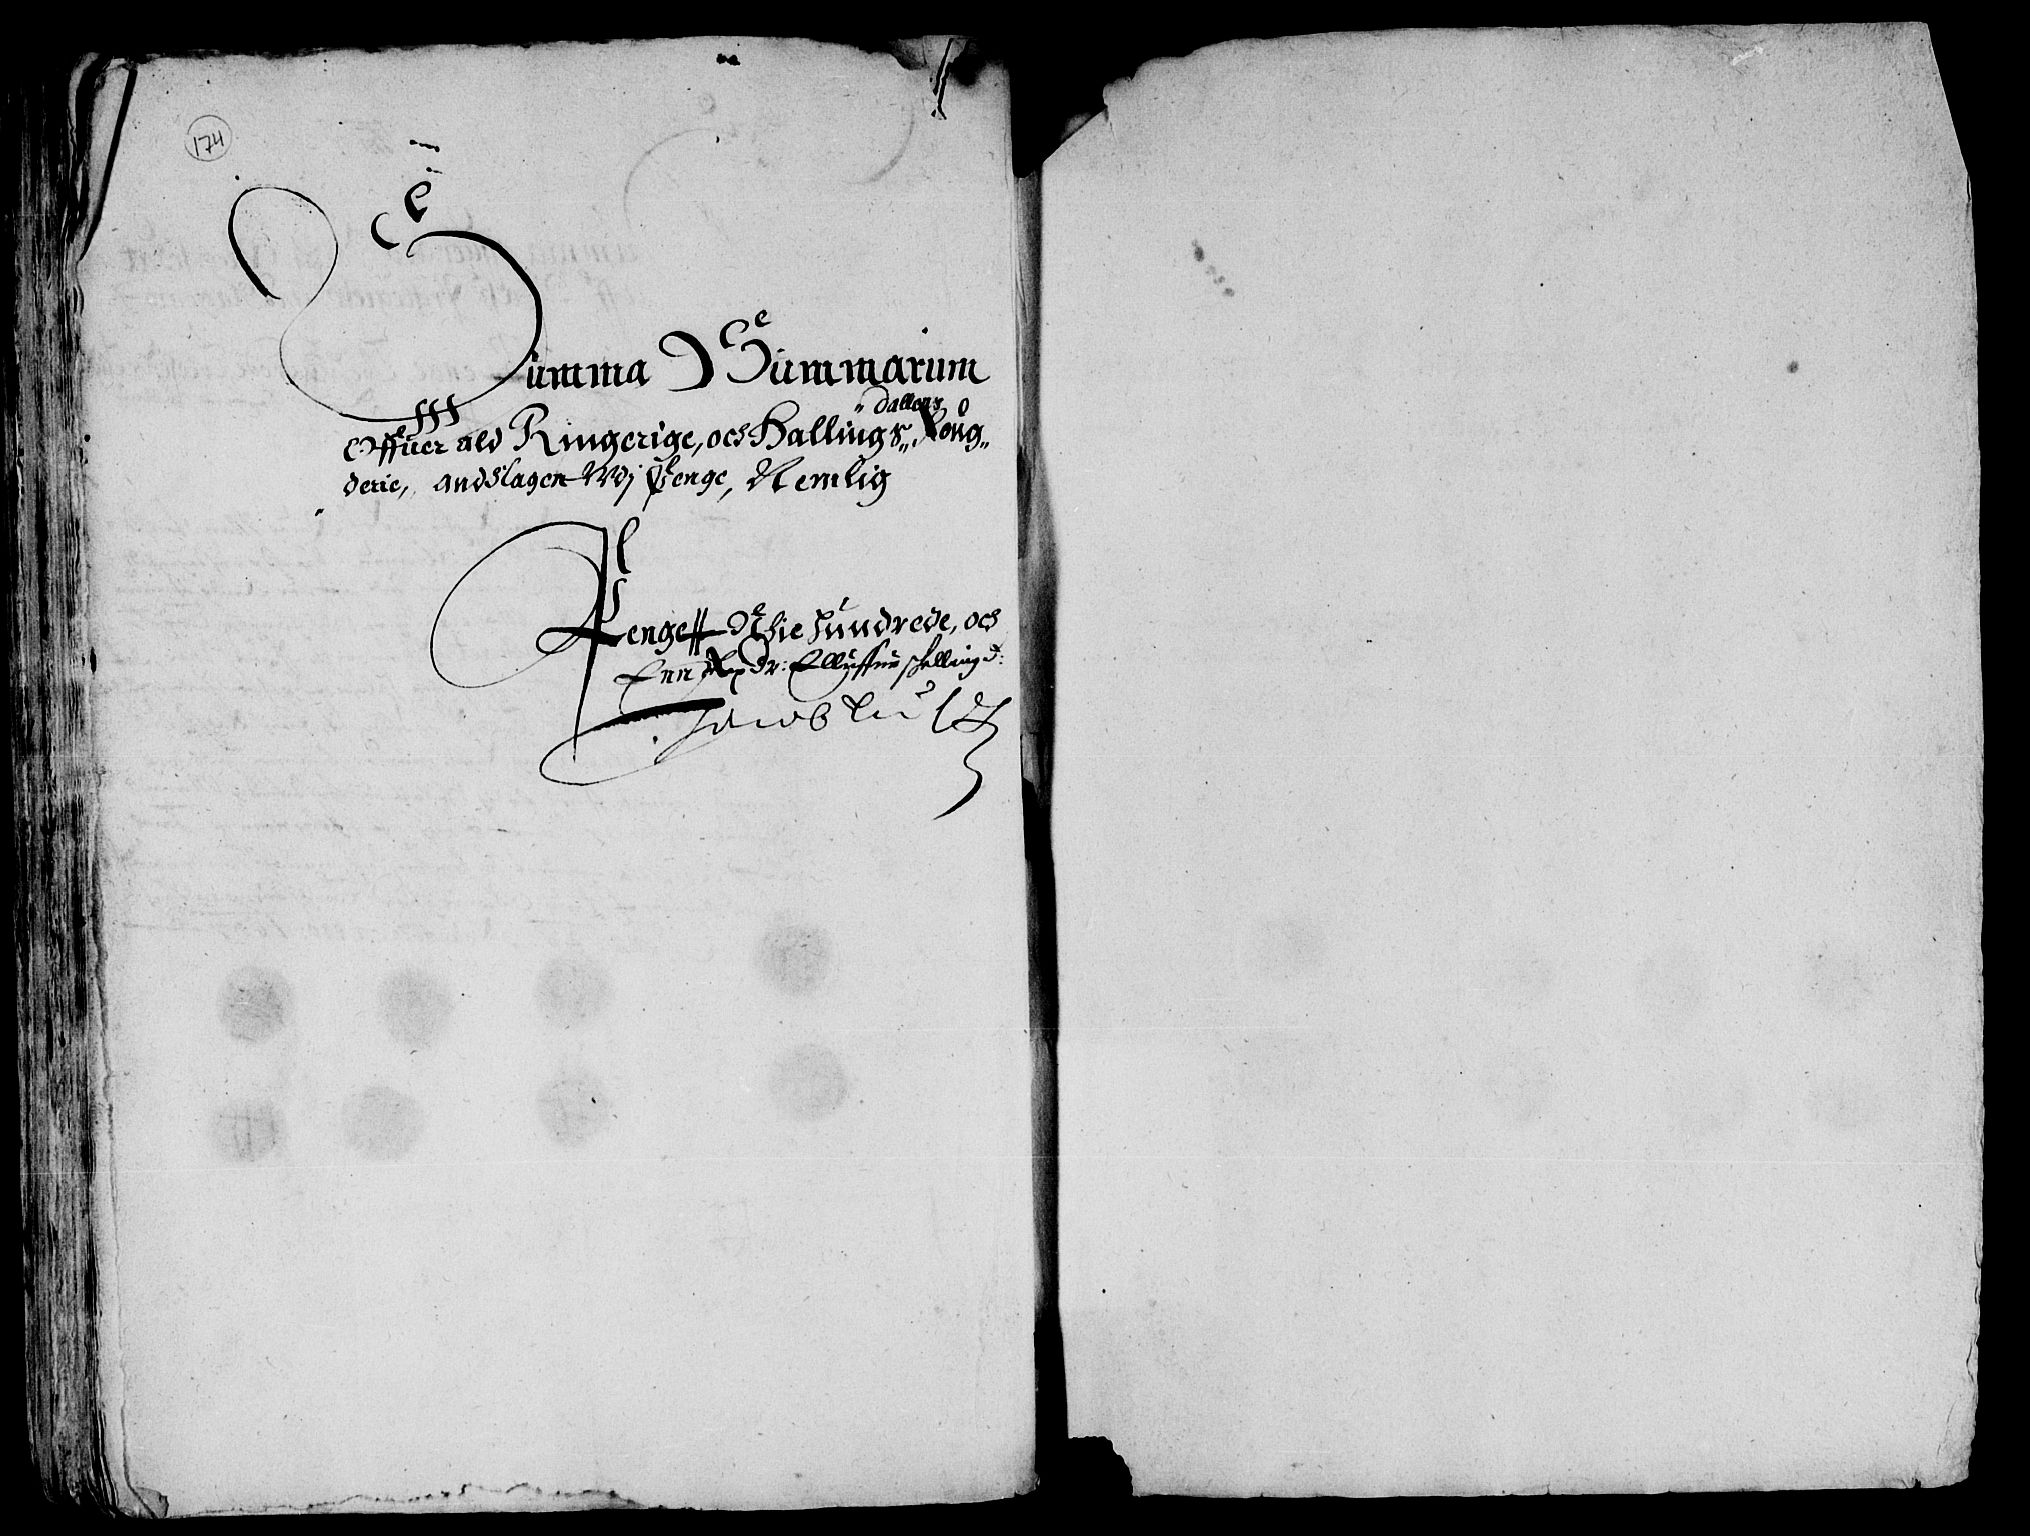 174
Summa Summarum
Offuer ald Ringerige, och Hallings„ dallens foug„
derie, andslagen Wdj Penge, Nemlig
Penge Nie hundrede, och
Enn Rixdr: Elluffue skelling d:
Jacob